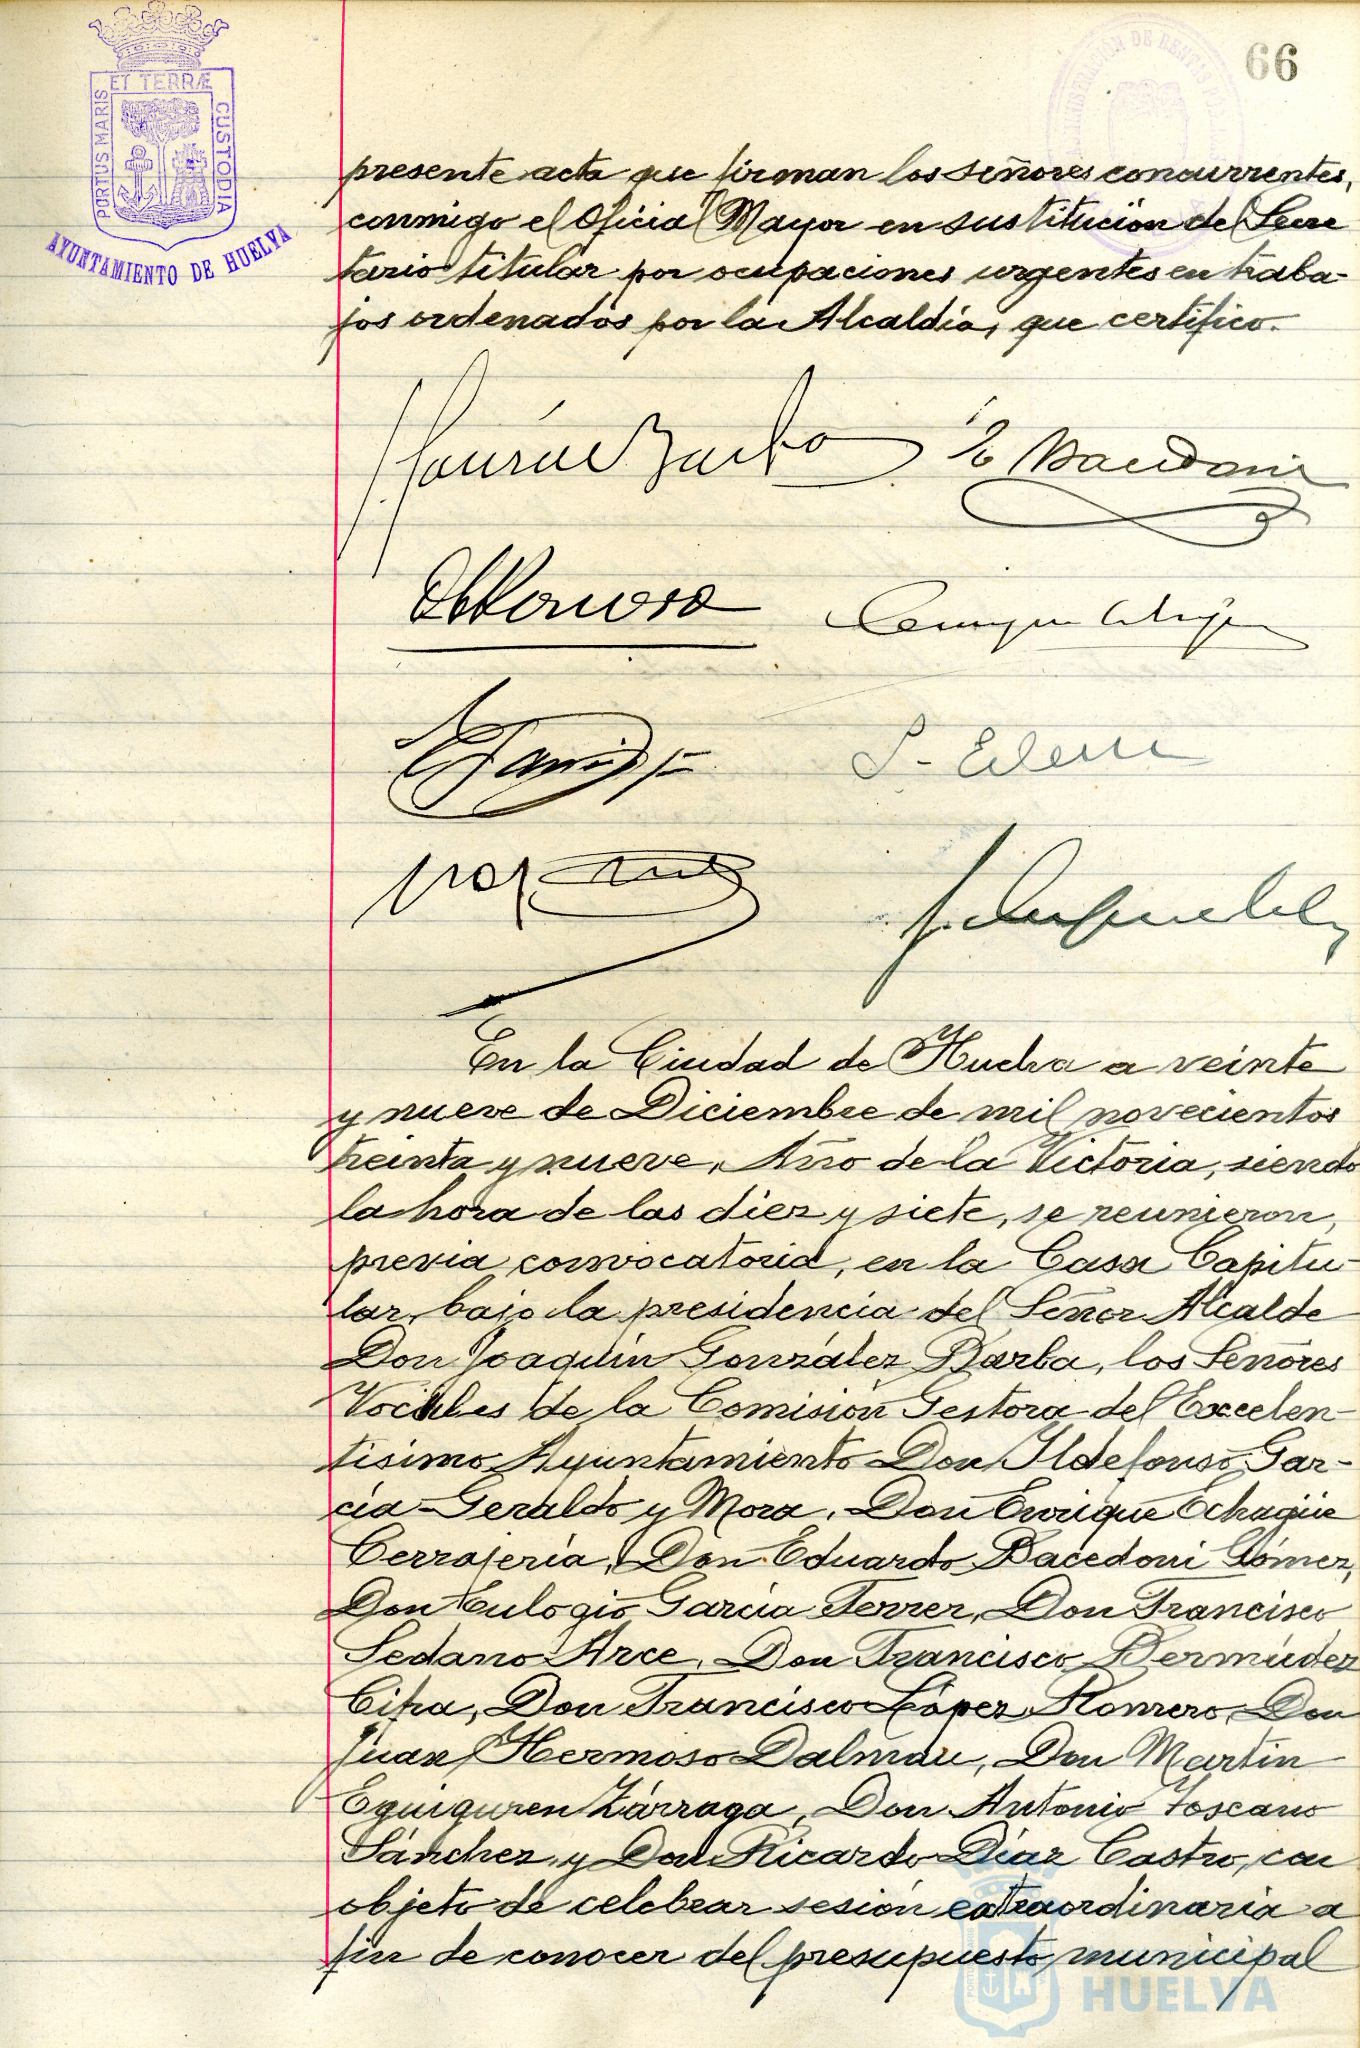 66
ET TERRÆ
PORTUS MARIS
CUSTODIA
AYUNTAMIENTO DE HUELVA
presente acta que firman los señores concurrentes,
conmigo el Oficial Mayor en sustitución del Secre
tario titular por ocupaciones urgentes en traba-
jos ordenados por la Alcaldía, que certifico.
En la Ciudad de Huelva a veinte
y nueve de Diciembre de mil novecientos
treinta y nueve, Año de la Victoria, siendo
la hora de las diez y siete, se reunieron,
previa convocatoria, en la Casa Capitu-
lar, bajo la presidencia del Señor Alcalde
Don Joaquín González Barba, los Señores
Vocales de la Comisión Gestora del Excelen-
tísimo Ayuntamiento Don Ildefonso Gar-
cía-Geraldo y Mora, Don Enrique Echagüe
Cerrajería, Don Eduardo Bacedoni Gómez,
Don Eulogio García Ferrer, Don Francisco
Sedano Arce, Don Francisco Bermúdez
Cifra, Don Francisco López Romero, Don
Juan Hermoso Dalmau, Don Martín
Eguiguren Zárraga, Don Antonio Toscano
Sánchez, y Don Ricardo Díaz Castro, con
objeto de celebrar sesión extraordinaria a
fin de conocer del presupuesto municipal
HUELVA